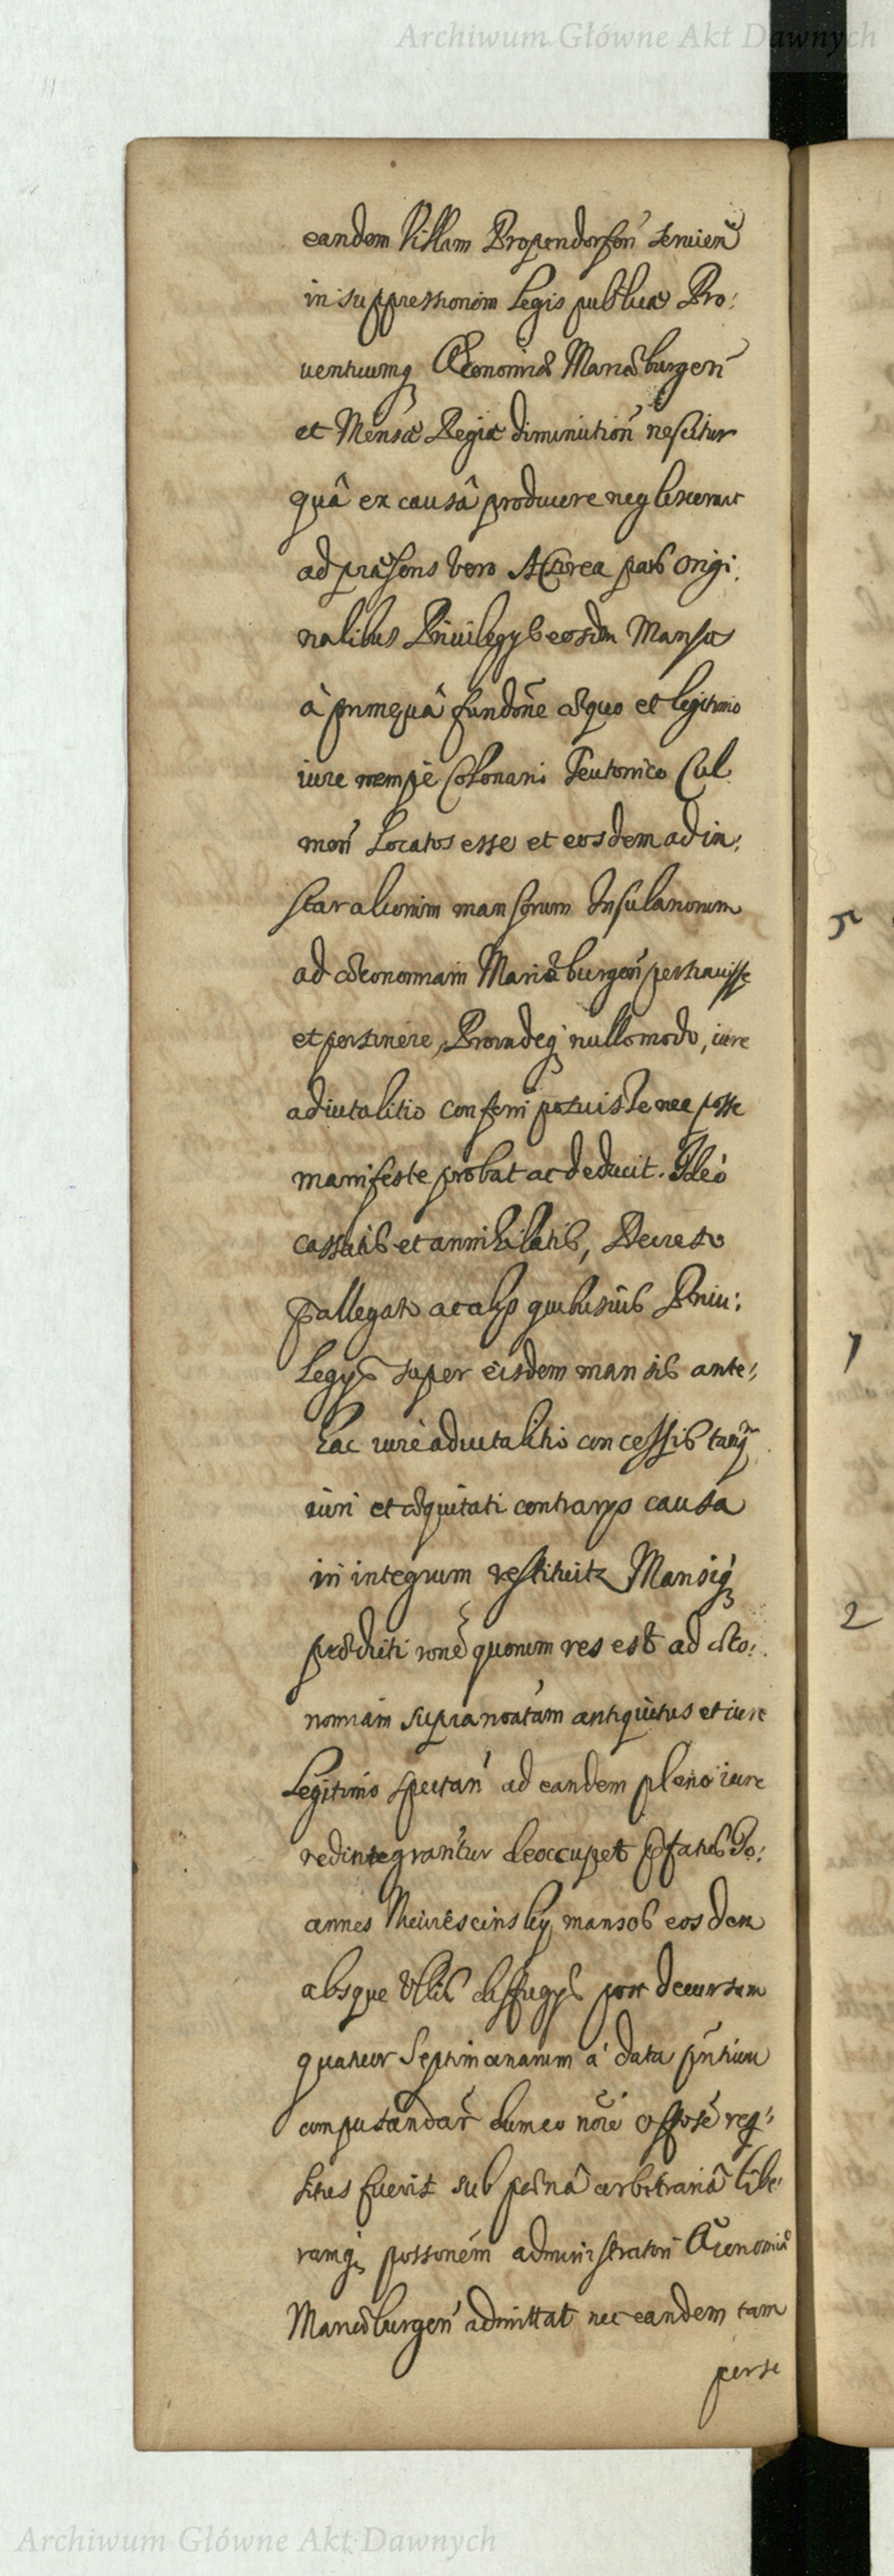 Archiwum Główne Akt Dawnych
eandem Villam Propendorfen̄ servien̄
in suppressionem Legis publicæ Pro:
uentuumq́ Œconomiæ Mariæburgen̄
et Mensæ Regiæ diminution̄ nescitur
quâ ex causâ producere neglexerunt
ad præsens vero Actorea pars Origi:
nalibus Privilegijs eosdem Mansos
à primæquâ fundōne æquo et legitimo
iure nempè Colonario Teutonico Cul
men̄ Locatos esse et eosdem ad in:
star aliorum mansorum Insulanorum
ad œconomiam Mariæburgen̄ pertinuisse
et pertinere, Proindeq́ nullomodo, iure
aduitalitio conferri potuisse nec posse
manifeste probat ac deducit. Ideò
cassatis et annihilatis, Decreto
p̄allegato ac alijs quibusuis Priui:
Legijs super eisdem mansis ante:
hac iure aduitalitio concessis tanq̄
iuri et æquitati contrarijs causa
in integrum restituitur Mansiq́
prædicti rōne quorum res est ad œco:
nomiam supranotatam antiquitus et iure
Legitimo spectan̄ ad eandem pleno iure
redintegrantur deoccupet p̄fatus Jo:
annes mansos eosdem
absque Ullis diffugijs post decursum
quatuor Septimanarum à data p̄ntium
computandar̄ dum eo nōie Officiosè req:
situs fuerit sub pœnâ arbitrariâ libe:
ramq́ possionem administratori Œconomiæ
Mariæburgen̄ admittat nec eandem tam
per se
5
1
2
Archiwum Główne Akt Dawnych